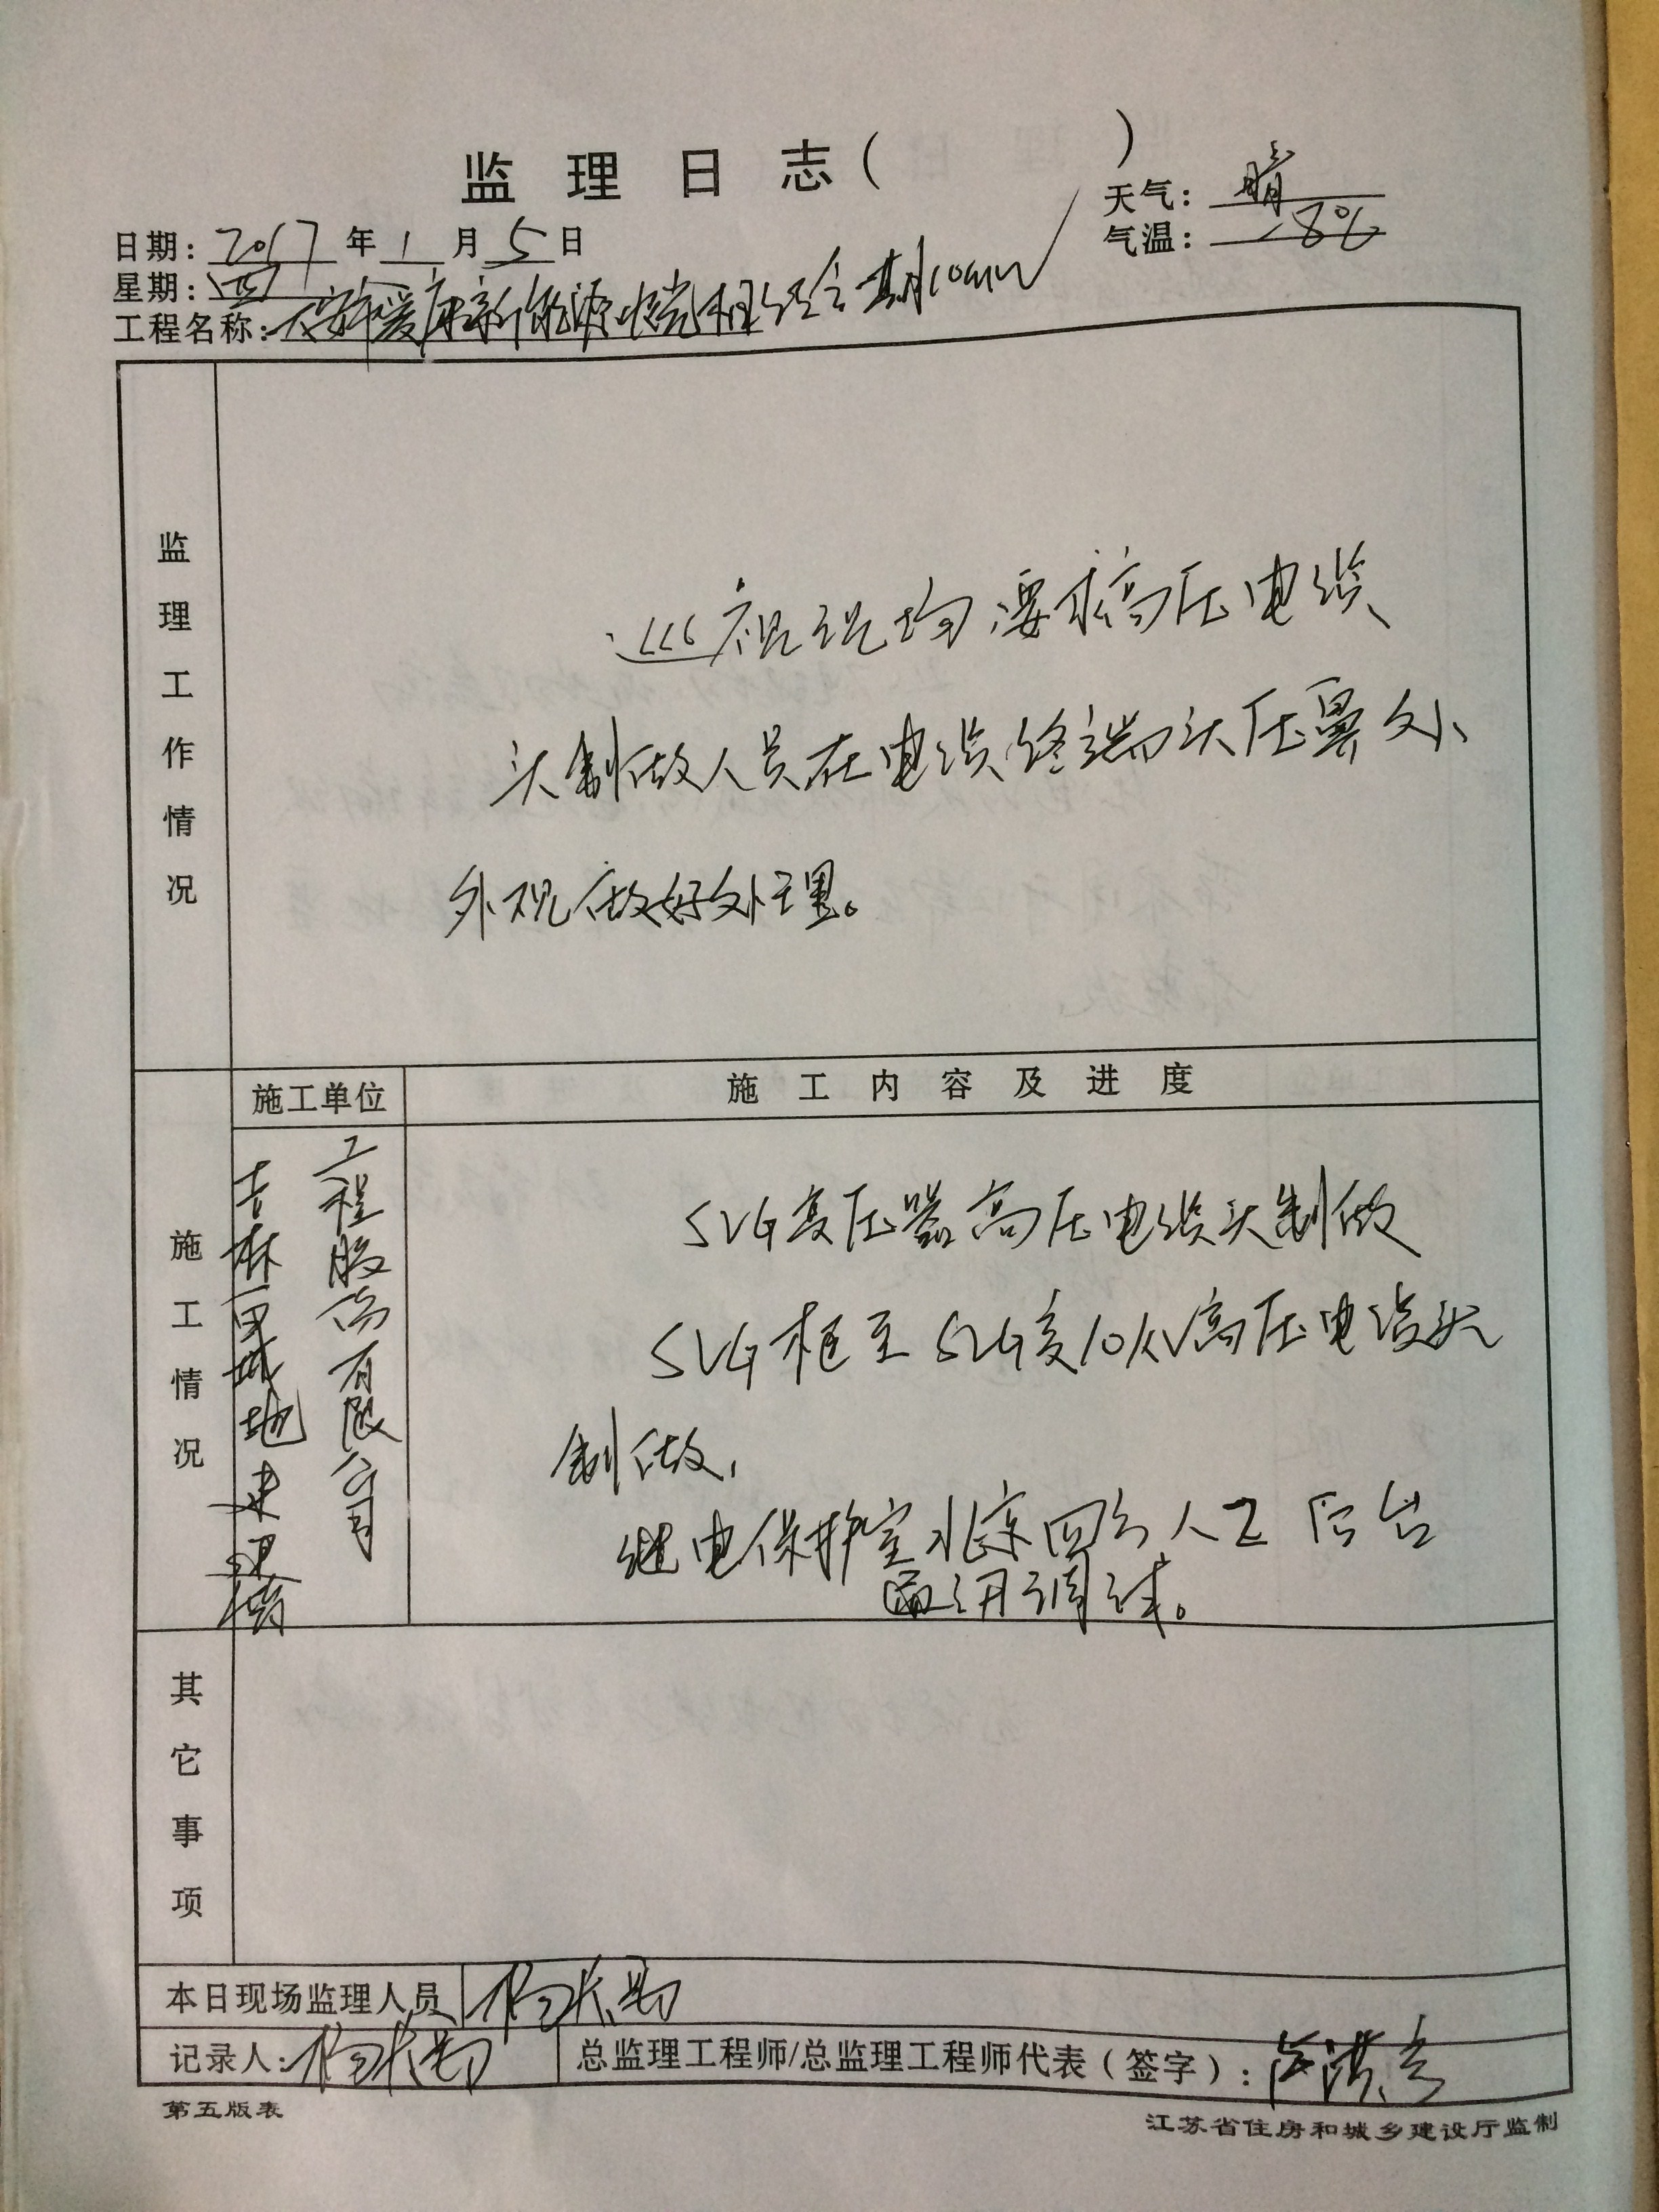 监理日志( )
天气：晴
日期：2017年1月5日
气温：-8℃
星期：四
工程名称：大安市爱康新能源 一期10MW
监理工作情况
巡视现场要求高压电缆
头制做人员在电缆终端头压鼻处、
外观做好处理。
施工情况
施工单位
施工内容及进度
吉林 地建设
工程股份有限公司
SVG变压器高压电缆头制做
SVG柜至SVG变10KV高压电缆头
制做，
继电保护室北京四方人工后台
调试。
其它事项
本日现场监理人员
记录人：
总监理工程师/总监理工程师代表（签字）：
第五版表
江苏省住房和城乡建设厅监制